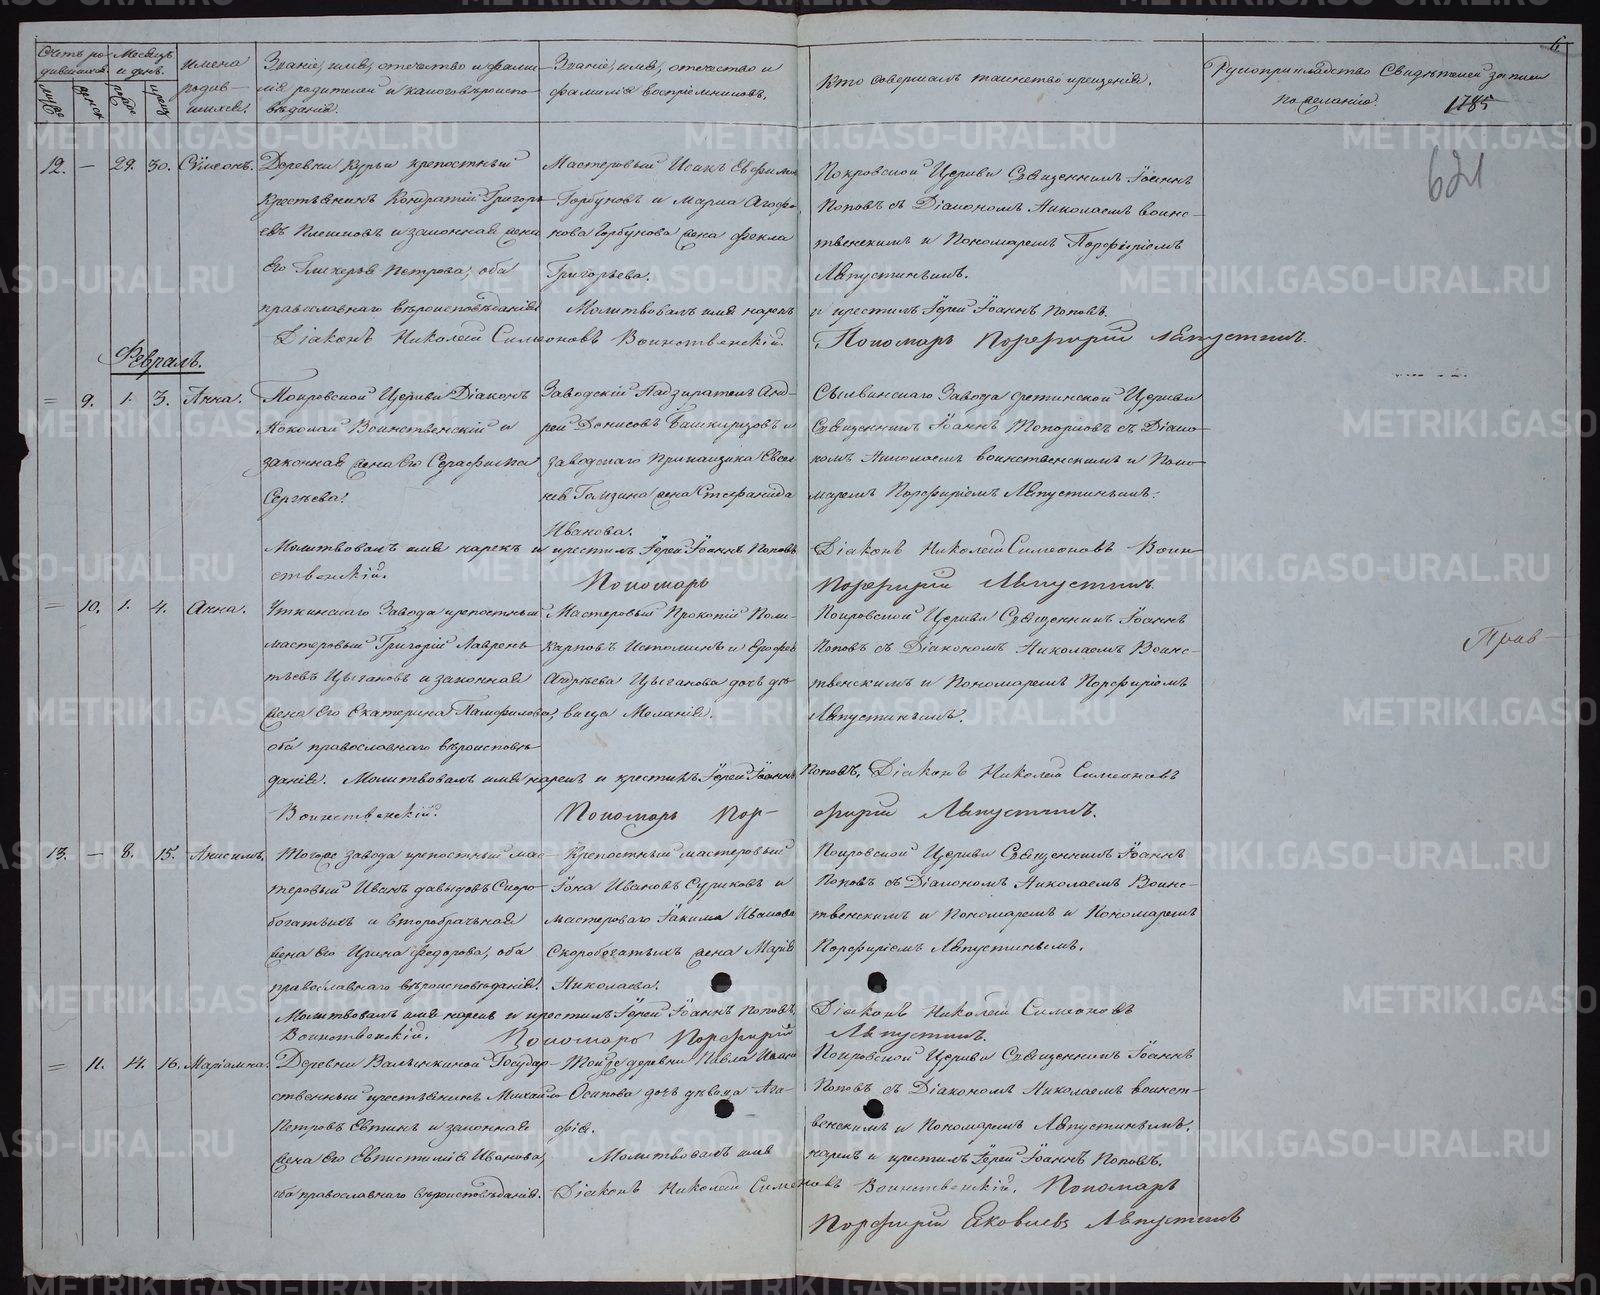 6.
Счетъ родившихся.
мужес
женск
Месяцъ и день.
рожд
крещ
Имена родившихся.
Званіе, имя, отечество и фамилія родителей и какого вѣроисповѣданія.
Званіе, имя, отечество и фамилія воспріемниковъ.
Кто совершалъ таинство крещенія.
Рукоприкладство Свидѣтелей записи по желанію.
1785
621
12. — 29. 30. Сѵмеонъ.
Деревни Курьи крепостный
крестьянинъ Кондратій Григорь-
евъ Плешковъ и законная жена
его Гликерья Петрова, оба
православнаго вѣроисповѣданія
Мастеровый Исакъ Евфимовъ
Горбуновъ и Марка Агофо-
нова Горбунова жена Фекла
Григорьева.
Молитвовалъ имя нарекъ
Покровской Церкви Священникъ Іоаннъ
Поповъ съ Діакономъ Николаемъ Воинс-
твенскимъ и Пономаремъ Порфиріемъ
Августинымъ.
и крестилъ Іерей Іоаннъ Поповъ.
Діаконъ Николай Симеоновъ Воинственскій.
Пономарь Порфирій Августинъ.
Февраль.
= 9. 1. 3. Анна.
Покровской Церкви Діаконъ
Николай Воинственскій и
законная жена его Серафима
Сергѣева.
Заводскій Надзиратель Анд-
рей Денисовъ Башкирцовъ и
заводскаго Прикащика Евсе-
ива Галзина жена Стефанида
Иванова.
Сылвинскаго Завода Сретинской Церкви
Священникъ Іоаннъ Топорковъ съ Діако-
комъ Николаемъ Воинственскимъ и Поно-
маремъ Порфиріемъ Августинымъ.
Молитвовалъ имя нарекъ и крестилъ Іерей Іоаннъ Поповъ
Діаконъ Николай Симеоновъ Воин-
ственскій.
Пономарь
Порфирій Августинъ.
= 10. 1. 4. Анна.
Уткинскаго Завода крепостный
мастеровый Григорій Лаврень-
тьевъ Цыгановъ и законная
жена его Екатерина Памфилова,
оба православнаго вѣроисповѣ-
данія. Молитвовалъ имя нарекъ и крестилъ Іерей Іоаннъ
Мастеровый Прокопій Поли-
карповъ Истоминъ и Ерофея
Андрѣева Цыганова дочь дѣ-
вица Меланія.
Покровской Церкви Священникъ Іоаннъ
Поповъ съ Діакономъ Николаемъ Воинс-
твенскимъ и Пономаремъ Порфиріемъ
Августинымъ.
Поповъ. Діаконъ Николай Симеоновъ
Воинственскій.
Пономарь Пор-
фирій Августинъ.
Прав
13. — 8. 15. Анисимъ.
Тогоже завода крепостный мас-
теровый Иванъ Давыдовъ Скоро-
богатыхъ и второбрачная
жена его Ирина Федорова, оба
православнаго вѣроисповѣданія.
Крепостный мастеровый
Іона Ивановъ Суриковъ и
мастероваго Іакима Иванова
Скоробогатыхъ жена Марія
Николаева.
Покровской Церкви Священникъ Іоаннъ
Поповъ съ Діакономъ Николаемъ Воинс-
твенскимъ и Пономаремъ и Пономаремъ
Порфиріемъ Августинымъ.
Молитвовалъ имя нарекъ и крестилъ Іерей Іоаннъ Поповъ,
Діаконъ Николай Симеоновъ
Воинственскій.
Пономарь Порфирій
Августинъ.
= 11. 14. 16. Маріамна.
Деревни Валынкиной Государ-
ственный крестьянинъ Михайло
Петровъ Евтинъ и законная
жена его Евпистимія Иванова,
оба православнаго вѣроисповѣданія.
Тойже деревни Павла Ивана
Осипова дочь дѣвица Ага-
фія.
Молитвовалъ имя
Покровской Церкви Священникъ Іоаннъ
Поповъ съ Діакономъ Николаемъ Воинст-
венскимъ и Пономаремъ Августинымъ.
нарекъ и крестилъ Іерей Іоаннъ Поповъ.
Діаконъ Николай Симеоновъ Воинственскій. Пономарь
Порфирій Яковлевъ Августинъ
METRIKI.GASO-URAL.RU